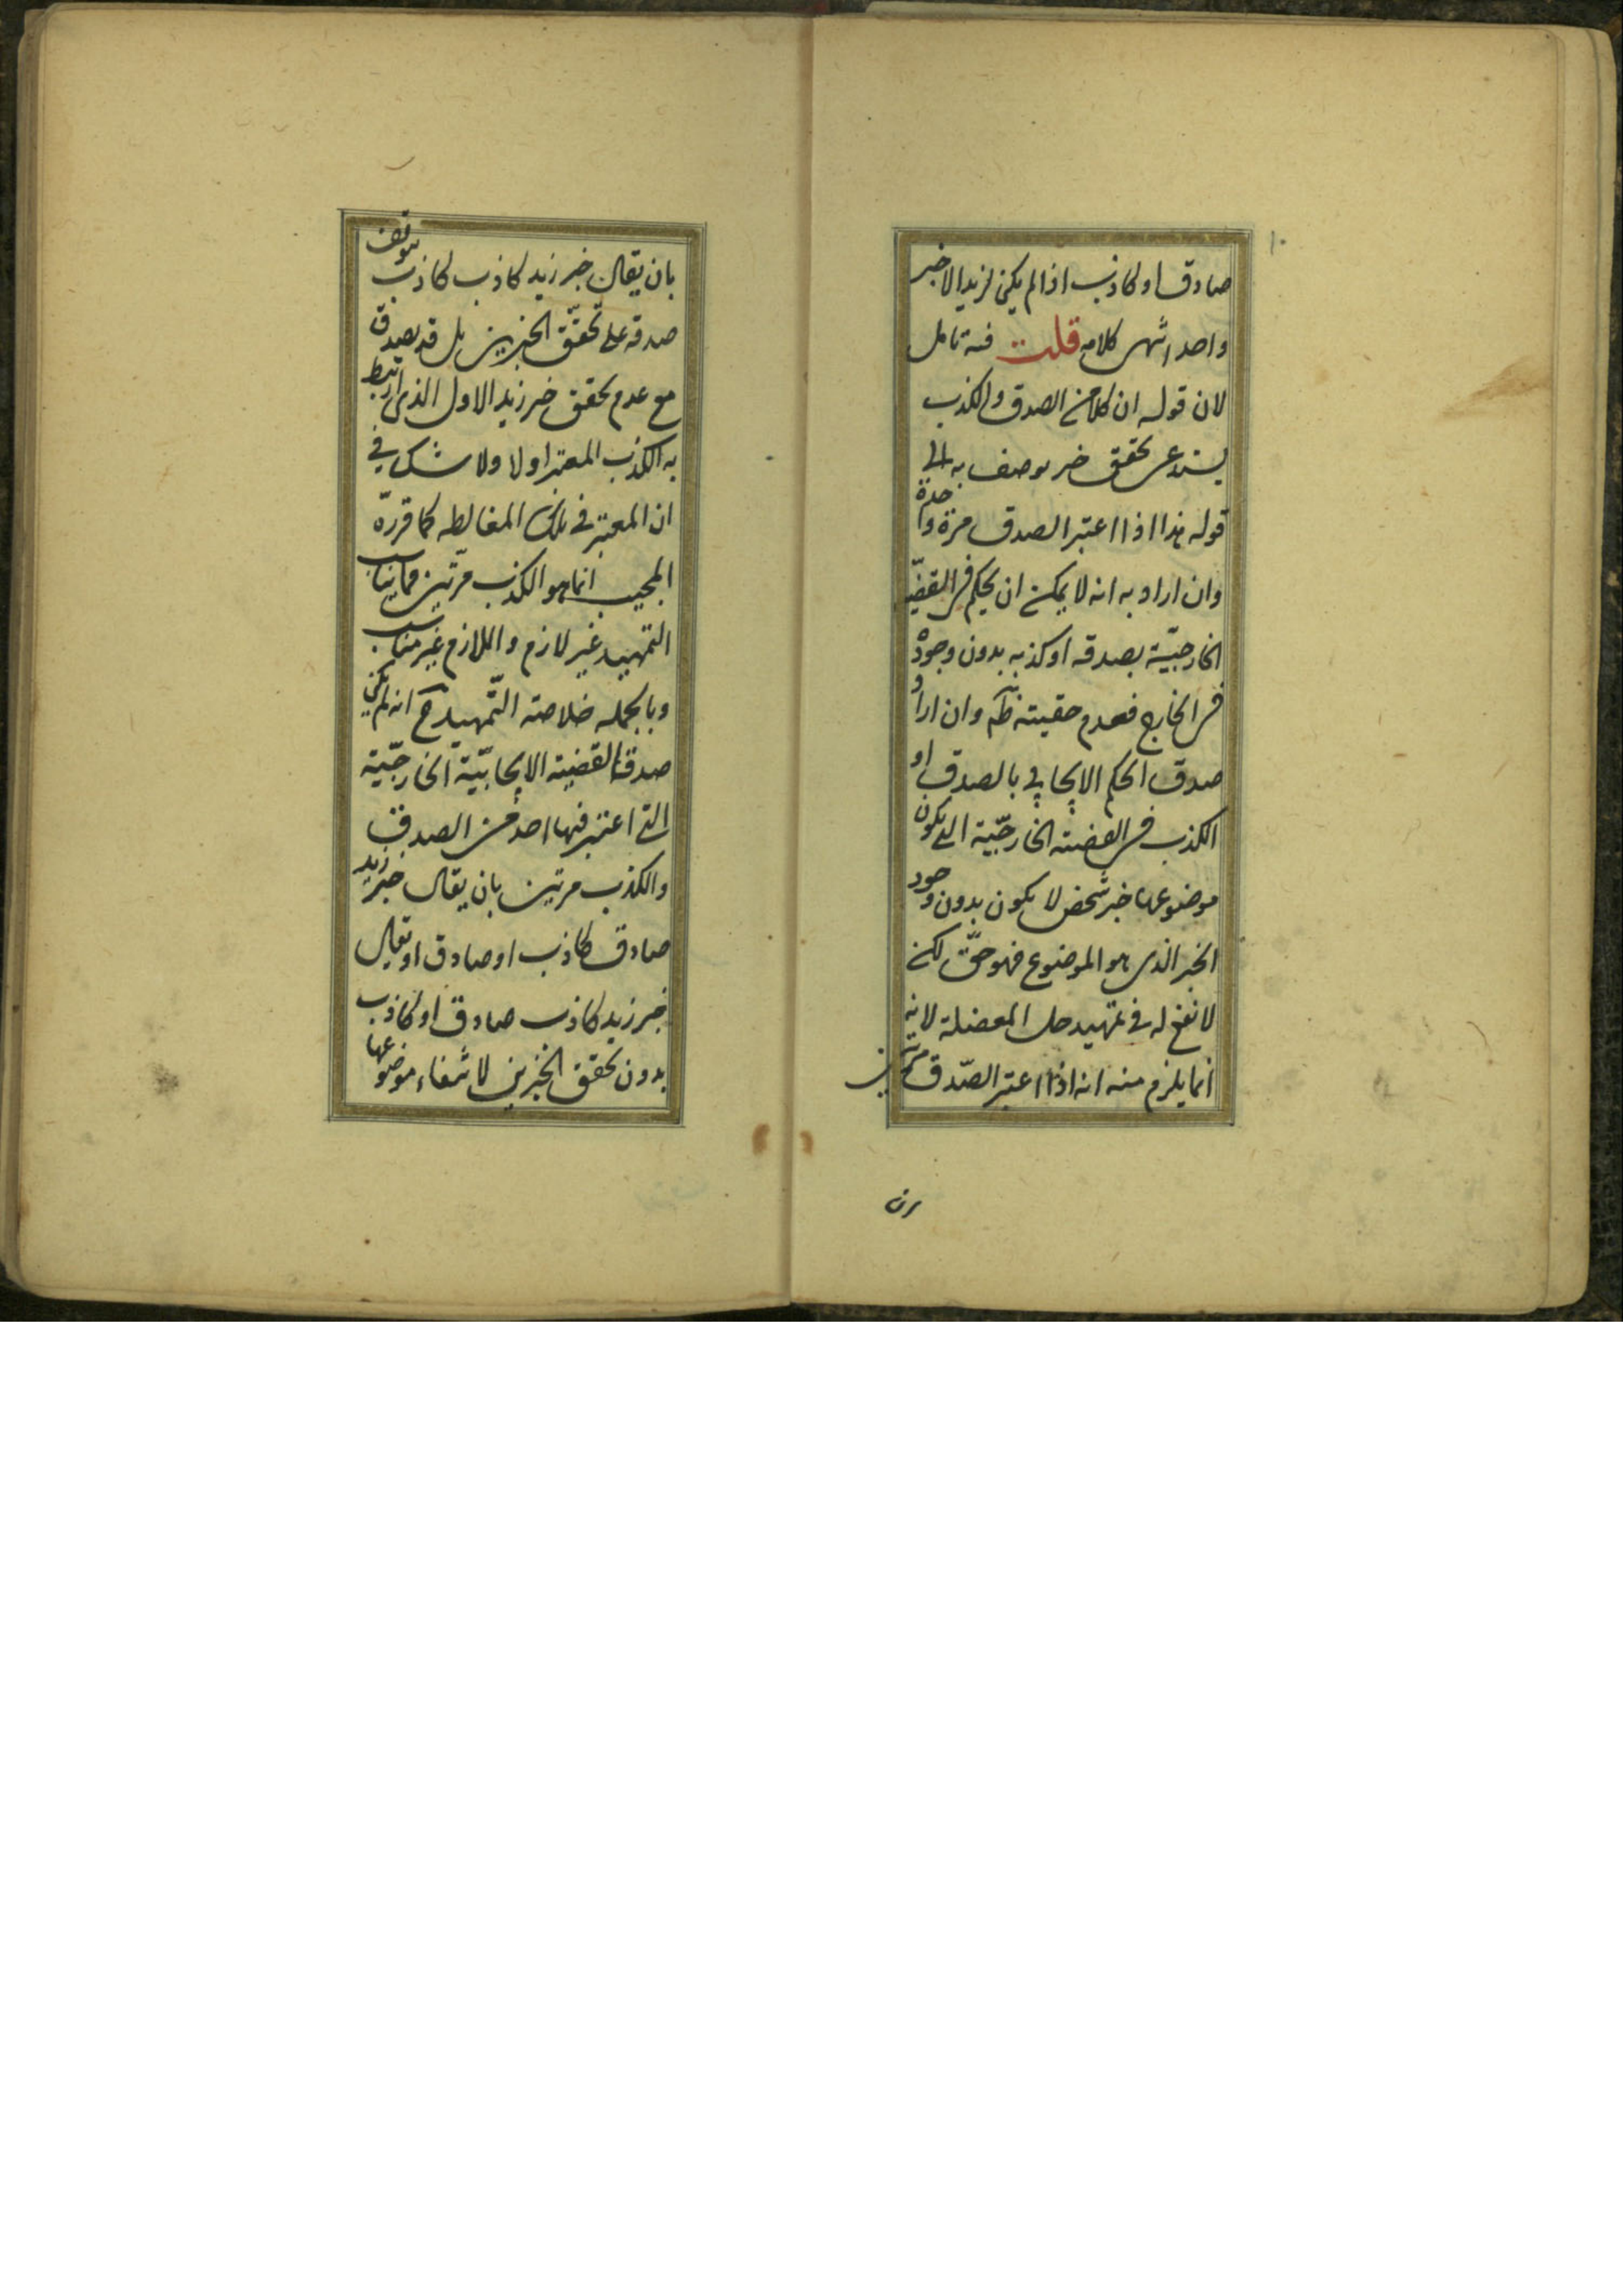 ١٠
صادق او كاذب اذا لم يكن لزيد الا خبر
واحد انتهى كلامه قلت فيه تامل
لان قوله ان كلا من الصدق والكذب
يستدعى تحقق خبر يوصف به الى
قوله هذا اذا اعتبر الصدق مرة واحدة
وان اراد به انه لا يمكن ان يحكم فى القضية
الخارجيّة بصدقه او كذبه بدون وجوده
فى الخارج فعدم حقيته ظ وان اراد
صدق الحكم الايجابى بالصدق او
الكذب فى القضية الخارجيّة التى يكون
موضوعها خبر شخص لا يكون بدون وجود
الخبر الذى هو الموضوع فهو حقّ لكن
لا نفع له فى تمهيد حل المعضلة لانه
انما يلزم منه انه اذا اعتبر الصّدق مرتين
بان يقال خبر زيد كاذب كاذب يتوقف
صدقه على تحقّق الخبرين بل قد يصدق
مع عدم تحقق خبر زيد الاول الذى ارتبط
به الكذب المعتبر اولا ولا شك فى
ان المعتبر فى تلك المغالطه كما قررّه
المجيب انما هو الكذب مرّتين فما يناسب
التمهيد غير لازم واللازم غير مناسب
وبالجمله خلاصة التّمهيد ح انه لم يكن
صدق القضية الايجابيّة الخارجيّة
التى اعتبر فيها احد من الصدق
والكذب مرتين بان يقال خبر زيد
صادق كاذب او صادق او يقال
خبر زيد كاذب صادق او كاذب
بدون تحقق الخبرين لانتفاء موضوعها
بان